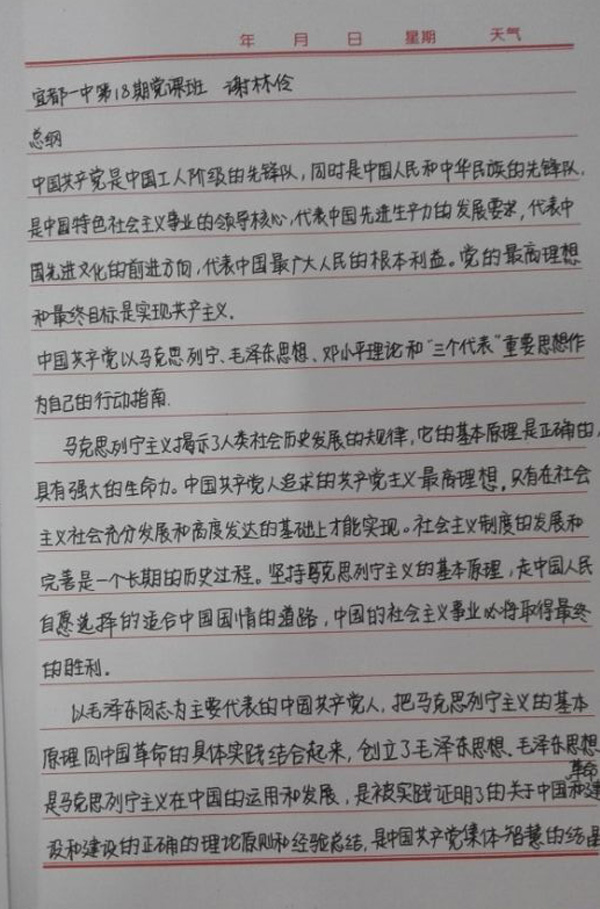 年 月 日 星期 天气
宜都一中第18期党课班 谢林伶
总纲
中国共产党是中国工人阶级的先锋队,同时是中国人民和中华民族的先锋队,
是中国特色社会主义事业的领导核心,代表中国先进生产力的发展要求,代表中
国先进文化的前进方向,代表中国最广大人民的根本利益。党的最高理想
和最终目标是实现共产主义.
中国共产党以马克思列宁、毛泽东思想、邓小平理论和“三个代表”重要思想作
为自己的行动指南.
马克思列宁主义揭示了人类社会历史发展的规律,它的基本原理是正确的,
具有强大的生命力。中国共产党人追求的共产党主义最高理想,只有在社会
主义社会充分发展和高度发达的基础上才能实现。社会主义制度的发展和
完善是一个长期的历史过程。坚持马克思列宁主义的基本原理,走中国人民
自愿选择的适合中国国情的道路,中国的社会主义事业必将取得最终
的胜利。
以毛泽东同志为主要代表的中国共产党人,把马克思列宁主义的基本
原理同中国革命的具体实践结合起来,创立了毛泽东思想、毛泽东思想
是马克思列宁主义在中国的运用和发展,是被实践证明了的关于中国革命和建
设和建设的正确的理论原则和经验总结,是中国共产党集体智慧的结晶